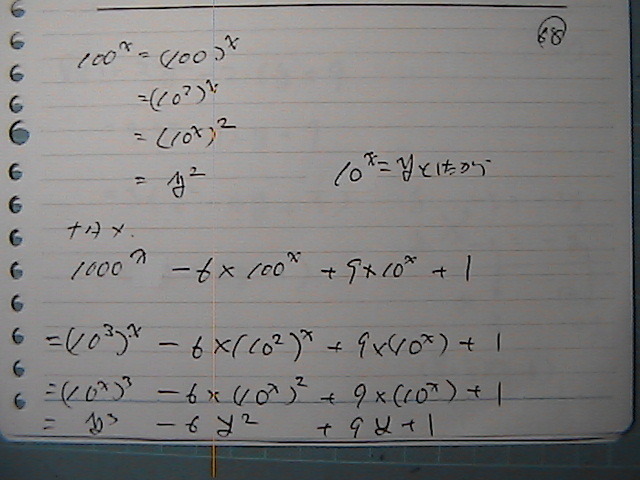 68
100^x = (100)^x
= (10^2)^x
= (10^x)^2
= y^2
10^x = y
1000^x - 6 × 100^x + 9 × 10^x + 1
= (10^3)^x - 6 × (10^2)^x + 9 × (10^x) + 1
= (10^x)^3 - 6 × (10^x)^2 + 9 × (10^x) + 1
= y^3 - 6y^2 + 9y + 1